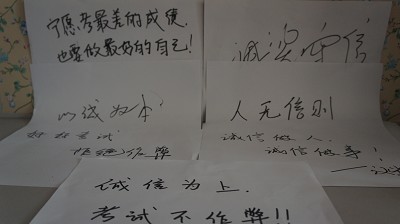 宁愿考最差的成绩
也要做最好的自己！
诚实守信
以诚为本
拒绝作弊
人无信则
诚信做人
诚信做事！
诚信为上，
考试不作弊！！